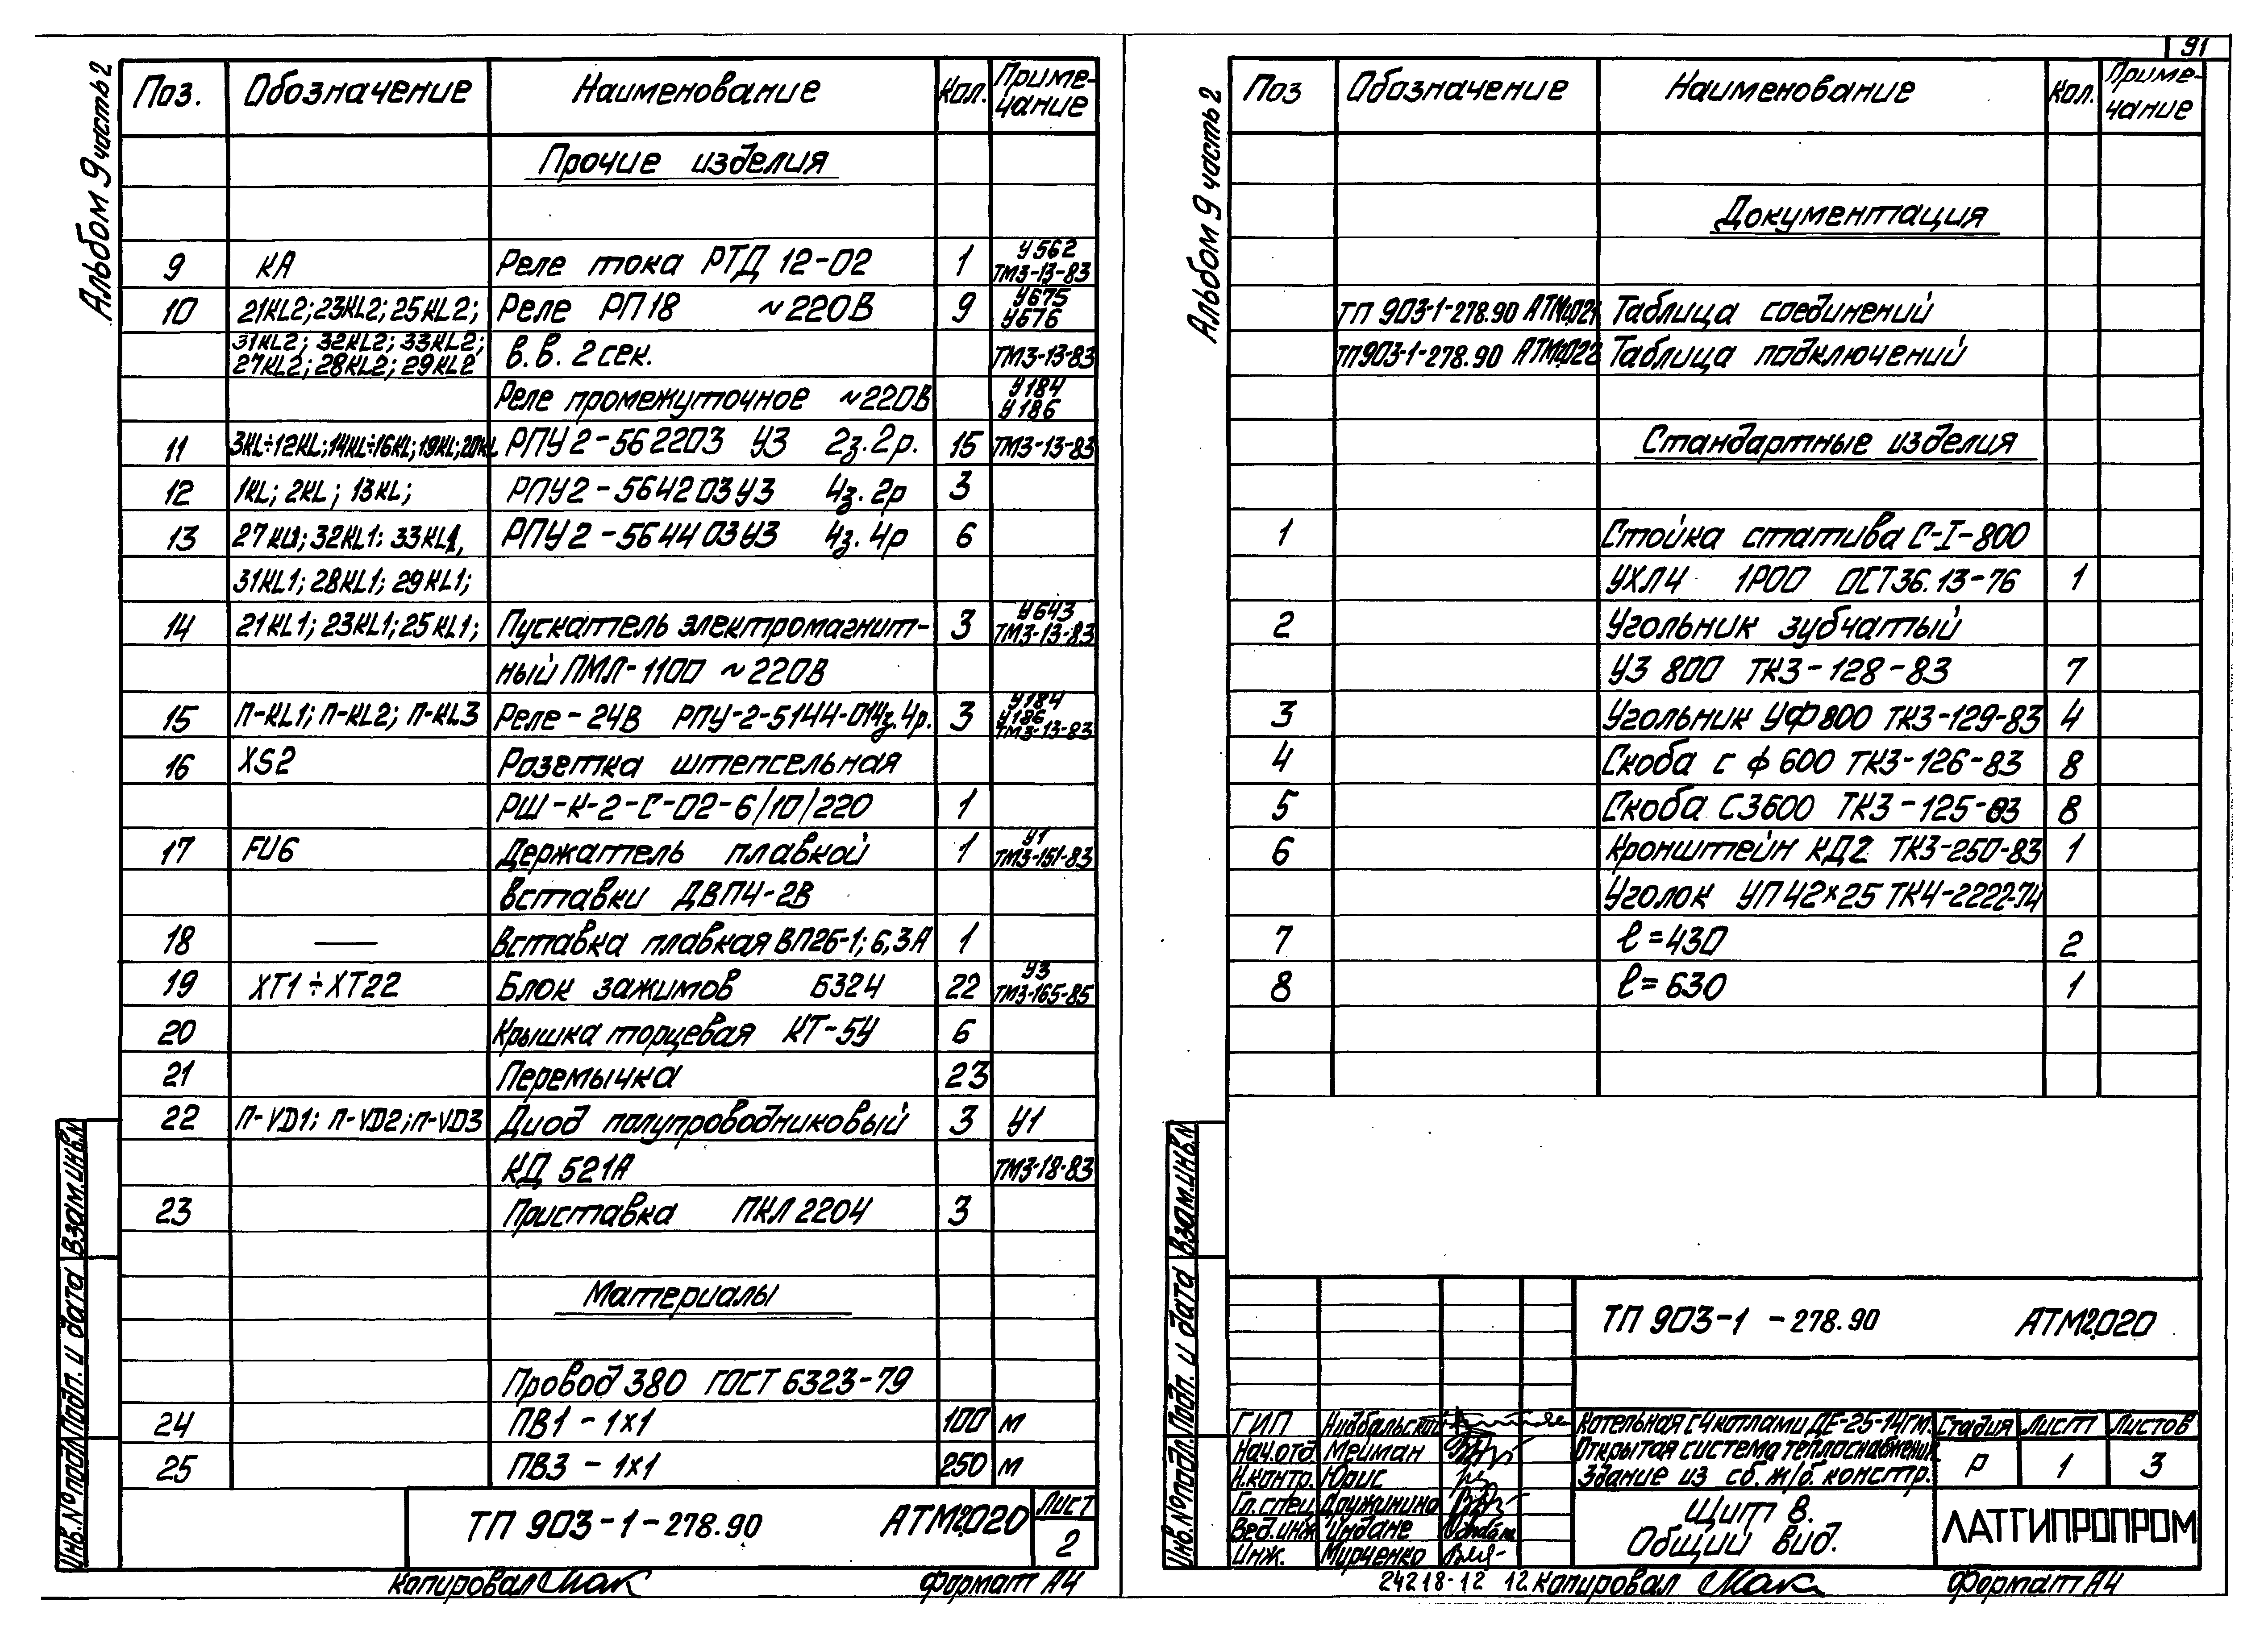 91
Альбом 9 часть 2
Поз. Обозначение Наименование Кол. Приме-
чание
Прочие изделия
9 КА Реле тока РТД 12-02 1 У562
ТМ3-13-83
10 21KL2; 23KL2; 25KL2; Реле РП18 ~220В 9 У675
У676
31KL2; 32KL2; 33KL2;
27KL2; 28KL2; 29KL2 в.в. 2 сек. ТМ3-13-83
Реле промежуточное ~220В У184
У186
11 3KL÷12KL; 14KL÷16KL; 19KL; 20KL РПУ2-562203 У3 2з.2р. 15 ТМ3-13-83
12 1KL; 2KL; 13KL; РПУ2-564203У3 4з.2р 3
13 27KL1; 32KL1; 33KL1, РПУ2-564403У3 4з.4р 6
31KL1; 28KL1; 29KL1;
14 21KL1; 23KL1; 25KL1; Пускатель электромагнит- 3 У643
ТМ3-13-83
ный ПМЛ-1100 ~220В
15 П-KL1; П-KL2; П-KL3 Реле-24В РПУ-2-5144-014з.4р. 3 У184
У186
ТМ3-13-83
16 XS2 Розетка штепсельная
РШ-К-2-С-02-6/10/220 1
17 FU6 Держатель плавкой 1 У1
ТМ3-151-83
вставки ДВП4-2В
18 — Вставка плавкая ВП2Б-1; 6,3А 1
19 XT1÷XT22 Блок зажимов Б324 22 У3
ТМ3-165-85
20 Крышка торцевая КТ-5У 6
21 Перемычка 23
22 П-VD1; П-VD2; П-VD3 Диод полупроводниковый 3 У1
КД 521А ТМ3-18-83
23 Приставка ПКЛ 2204 3
Материалы
Провод 380 ГОСТ 6323-79
24 ПВ1 - 1х1 100 м
25 ПВ3 - 1х1 250 м
ТП 903-1-278.90 АТМ2.020 Лист
2
Взам.инв.N
Подп. и дата
Инв.№ подл.
Копировал Формат А4
Альбом 9 часть 2
Поз Обозначение Наименование Кол. Приме-
чание
Документация
ТП 903-1-278.90 АТМ2.021 Таблица соединений
ТП 903-1-278.90 АТМ2.022 Таблица подключений
Стандартные изделия
1 Стойка статива С-I-800
УХЛ4 1Р00 ОСТ36.13-76 1
2 Угольник зубчатый
УЗ 800 ТК3-128-83 7
3 Угольник УФ800 ТК3-129-83 4
4 Скоба с ф 600 ТК3-126-83 8
5 Скоба СЗ600 ТК3-125-83 8
6 Кронштейн КД2 ТК3-250-83 1
Уголок УП 42×25 ТК4-2222-74
7 ℓ=430 2
8 ℓ=630 1
Взам.инв.N
Подп. и дата
Инв.№ подл.
ТП 903-1-278.90 АТМ2.020
ГИП Нидбальский
Нач.отд. Мейман
Н.контр. Юрис
Гл.спец. Дружинина
Вед.инж. Индане
Инж. Мурченко
Котельная с 4 котлами ДЕ-25-14ГМ.
Открытая система теплоснабжения.
Здание из сб. ж/б. констр.
Стадия Лист Листов
Р 1 3
Щит 8.
Общий вид.
ЛАТГИПРОПРОМ
24218-12 12 Копировал Формат А4